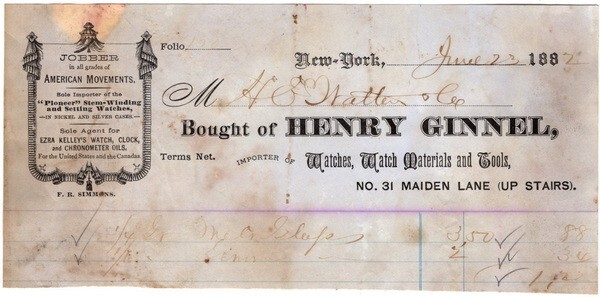 JOBBER
in all grades of
AMERICAN MOVEMENTS.
Sole Importer of the
"Pioneer" Stem-Winding
and Setting Watches,
—IN NICKEL AND SILVER CASES—
Sole Agent for
EZRA KELLEY'S WATCH, CLOCK,
and CHRONOMETER OILS,
For the United States and the Canadas.
F. R. SIMMONS.
Folio
New-York, June 23 1887
M H & Co
Bought of HENRY GINNEL,
Terms Net. IMPORTER OF Watches, Watch Materials and Tools,
NO. 31 MAIDEN LANE (UP STAIRS).
1/4 Gr Glass 3.50 88
2 34